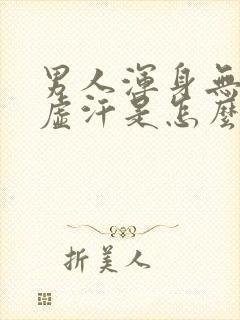 男人渾身無
虛汗是怎麼
折美人